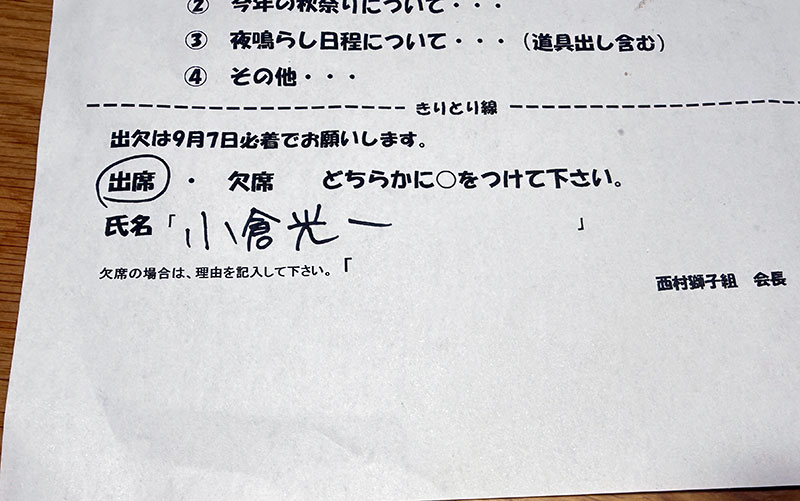 ② 今年の秋祭りについて・・・
③ 夜鳴らし日程について・・・（道具出し含む）
④ その他・・・
きりとり線
出欠は9月7日必着でお願いします。
出席 ・ 欠席 どちらかに○をつけて下さい。
氏名「小倉光一 」
欠席の場合は、理由を記入して下さい。「
西村獅子組 会長